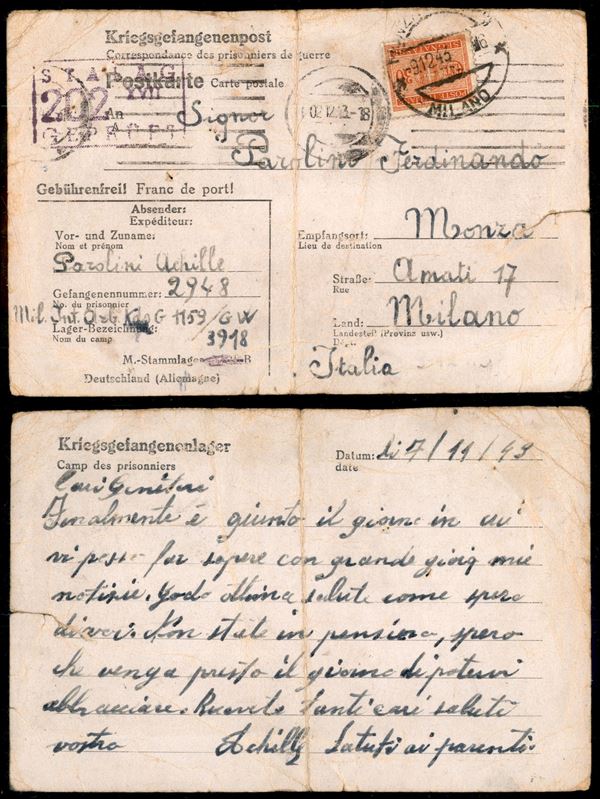 Kriegsgefangenenpost
Correspondance des prisonniers de guerre
Postkarte Carte postale
STALAG
202 XVII
GEPRÜFT
An
Signor
Parolini Ferdinando
02.12.43.-18
-9.12.43
MILANO
Gebührenfrei! Franc de port!
Absender:
Expéditeur:
Vor- und Zuname:
Nom et prénom
Parolini Achille
Gefangenennummer: 2948
No. du prisonnier
Mil. Int. Kdo G 1153/GW
Lager-Bezeichnung: 3918
Nom du camp
M.-Stammlager B
Deutschland (Allemagne)
Empfangsort: Monza
Lieu de destination
Straße: Amati 17
Rue
Land: Milano
Landesteil (Provinz usw.)
Italia
Kriegsgefangenenlager
Camp des prisonniers
Datum: li 7/11/43
date
Cari Genitori
Finalmente è giunto il giorno in cui
vi posso far sapere con grande gioia mie
notizie. Godo ottima salute come spero
di voi. Non state in pensiero, spero
che venga presto il giorno di potervi
abbracciare. Ricevete tanti cari saluti
vostro Achille Saluti ai parenti.